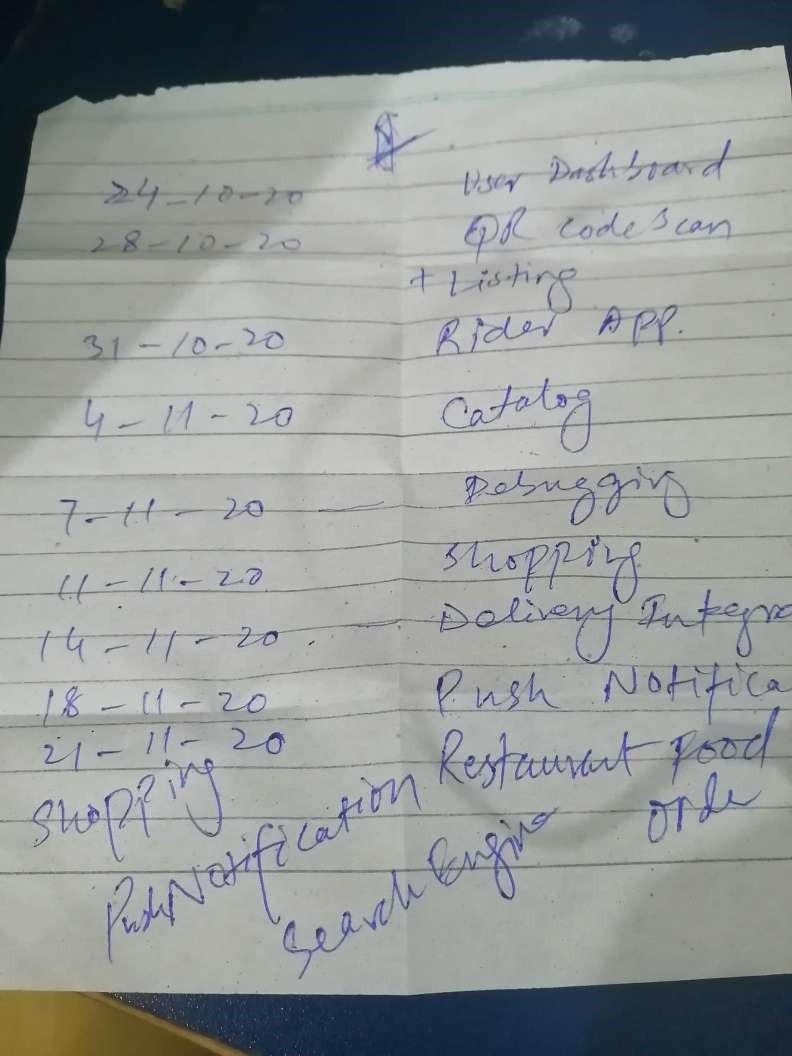 24-10-20 User Dashboard
28-10-20 QR code Scan
+ Listing
31-10-20 Rider APP.
4-11-20 Catalog
7-11-20 — Debugging
11-11-20 Shopping
14-11-20 — Delivery Integra
18-11-20 Push Notifica
21-11-20 Restaurant Food
Orde
Shopping
Push Notification
Search Engine